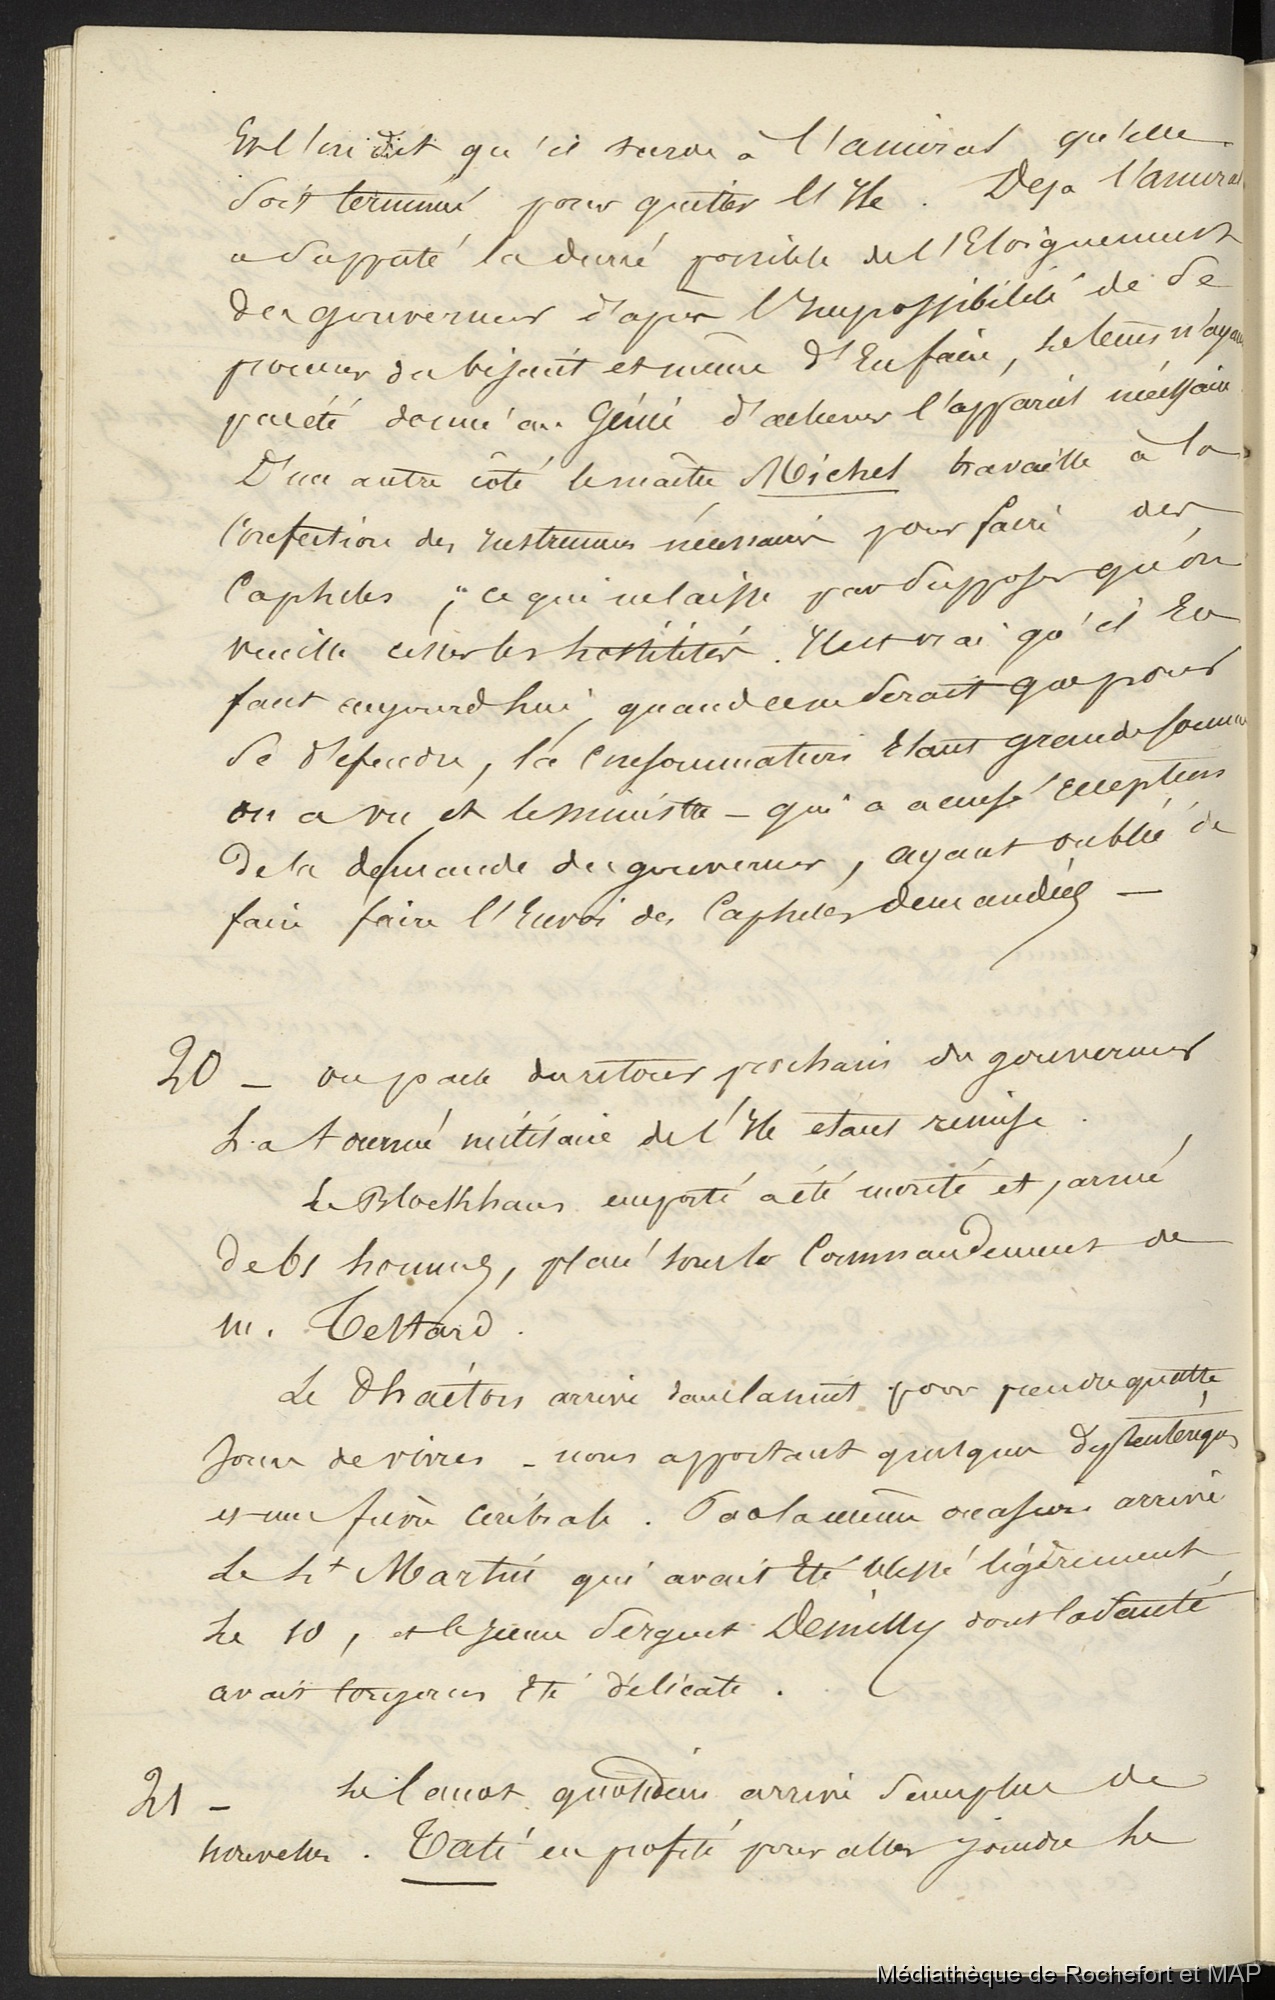 Et l'on dit qu'il tarde à l'amiral qu'elle
soit terminée pour quitter l'Ile. Deja l'amiral
a supputé la durée possible de l'Eloignement
du gouverneur d'après l'Impossibilité de se
procurer du biscuit et même d'En faire, le tems n'ayant
pas été donné au Génie d'achever l'appareil nécessaire
D'un autre côté le maître Michel travaille à la
Confection des Instrumens nécessaires pour faire des
Capsules ; ce qui ne laisse pas supposer qu'on
veuille cesser les hostilités. Il est vrai qu'il En
faut aujourd'hui, quand ce ne serait que pour
se défendre, la Consommation Etant grande comme
on a vu et le ministre - qui a accusé réception
de la demande du gouverneur, ayant oublié de
faire faire l'Envoi des Capsules demandées —
20 — on parle du retour prochain du gouverneur
La tournée militaire de l'Ile étant remise.
Le Blockhaus emporté a été monté et, armé
de 61 hommes, placé sous le Commandement de
m. Testard.
Le Phaéton arrive dans la nuit pour prendre quatre
jours de vivres - nous apportant quelques dyssentériques
et une fièvre cérébrale. Par la même occasion arrive
Le Lt Martin qui avait Eté blessé légèrement
Le 10, et le jeune Sergent Demilly dont la santé
avait toujours Eté délicate.
21 — Le Canot quotidien arrive sans plus de
nouvelles. Taté en profite pour aller joindre Le
Médiathèque de Rochefort et MAP